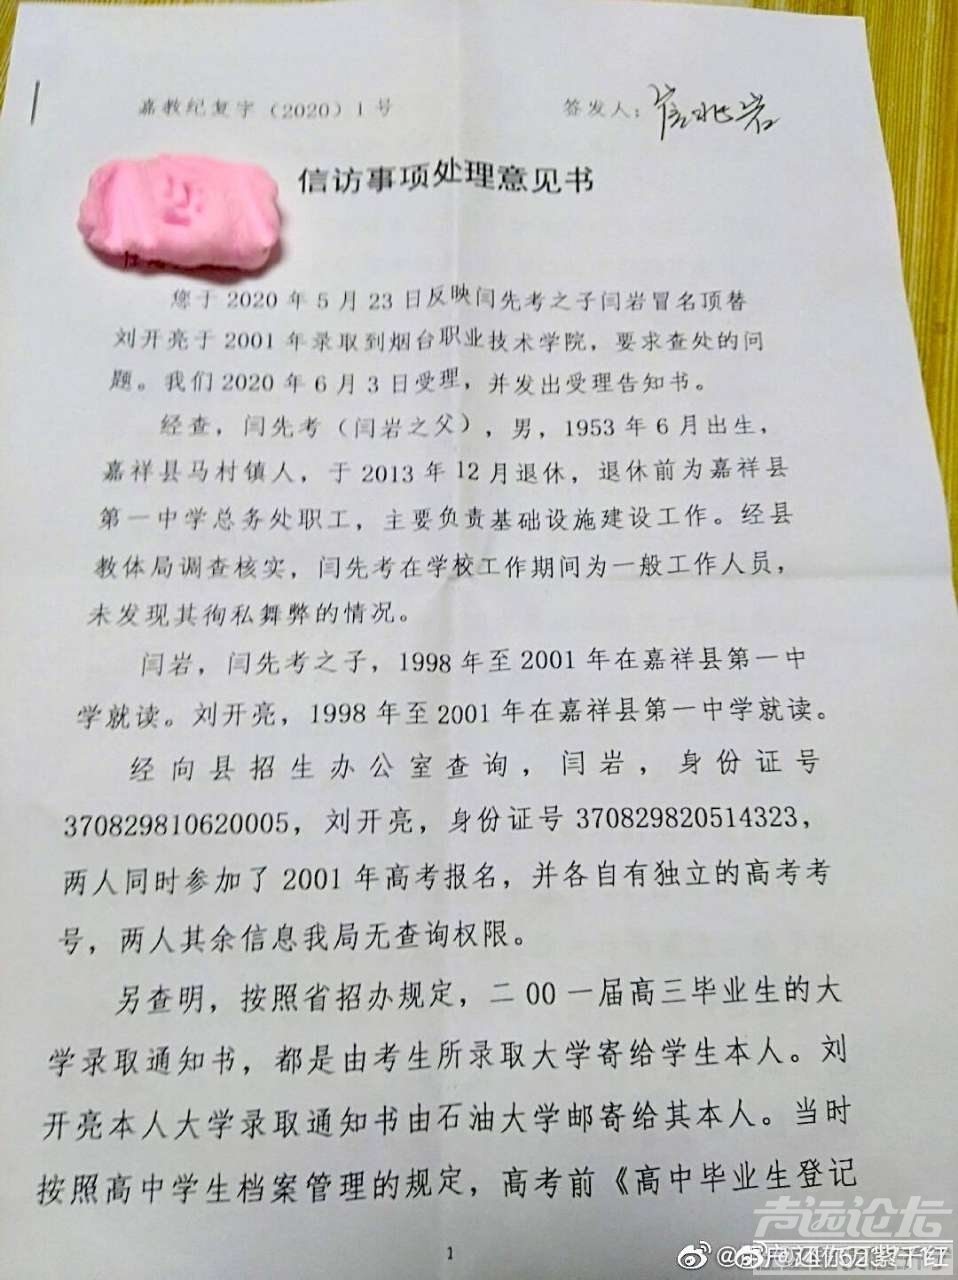 嘉教纪复字（2020）1号 签发人：
信访事项处理意见书
您于2020年5月23日反映闫先考之子闫岩冒名顶替
刘开亮于2001年录取到烟台职业技术学院，要求查处的问
题。我们2020年6月3日受理，并发出受理告知书。
经查，闫先考（闫岩之父），男，1953年6月出生，
嘉祥县马村镇人，于2013年12月退休，退休前为嘉祥县
第一中学总务处职工，主要负责基础设施建设工作。经县
教体局调查核实，闫先考在学校工作期间为一般工作人员，
未发现其徇私舞弊的情况。
闫岩，闫先考之子，1998年至2001年在嘉祥县第一中
学就读。刘开亮，1998年至2001年在嘉祥县第一中学就读。
经向县招生办公室查询，闫岩，身份证号
370829810620005，刘开亮，身份证号370829820514323，
两人同时参加了2001年高考报名，并各自有独立的高考考
号，两人其余信息我局无查询权限。
另查明，按照省招办规定，二00一届高三毕业生的大
学录取通知书，都是由考生所录取大学寄给学生本人。刘
开亮本人大学录取通知书由石油大学邮寄给其本人。当时
按照高中学生档案管理的规定，高考前《高中毕业生登记
1
声远论坛
还你万紫千红